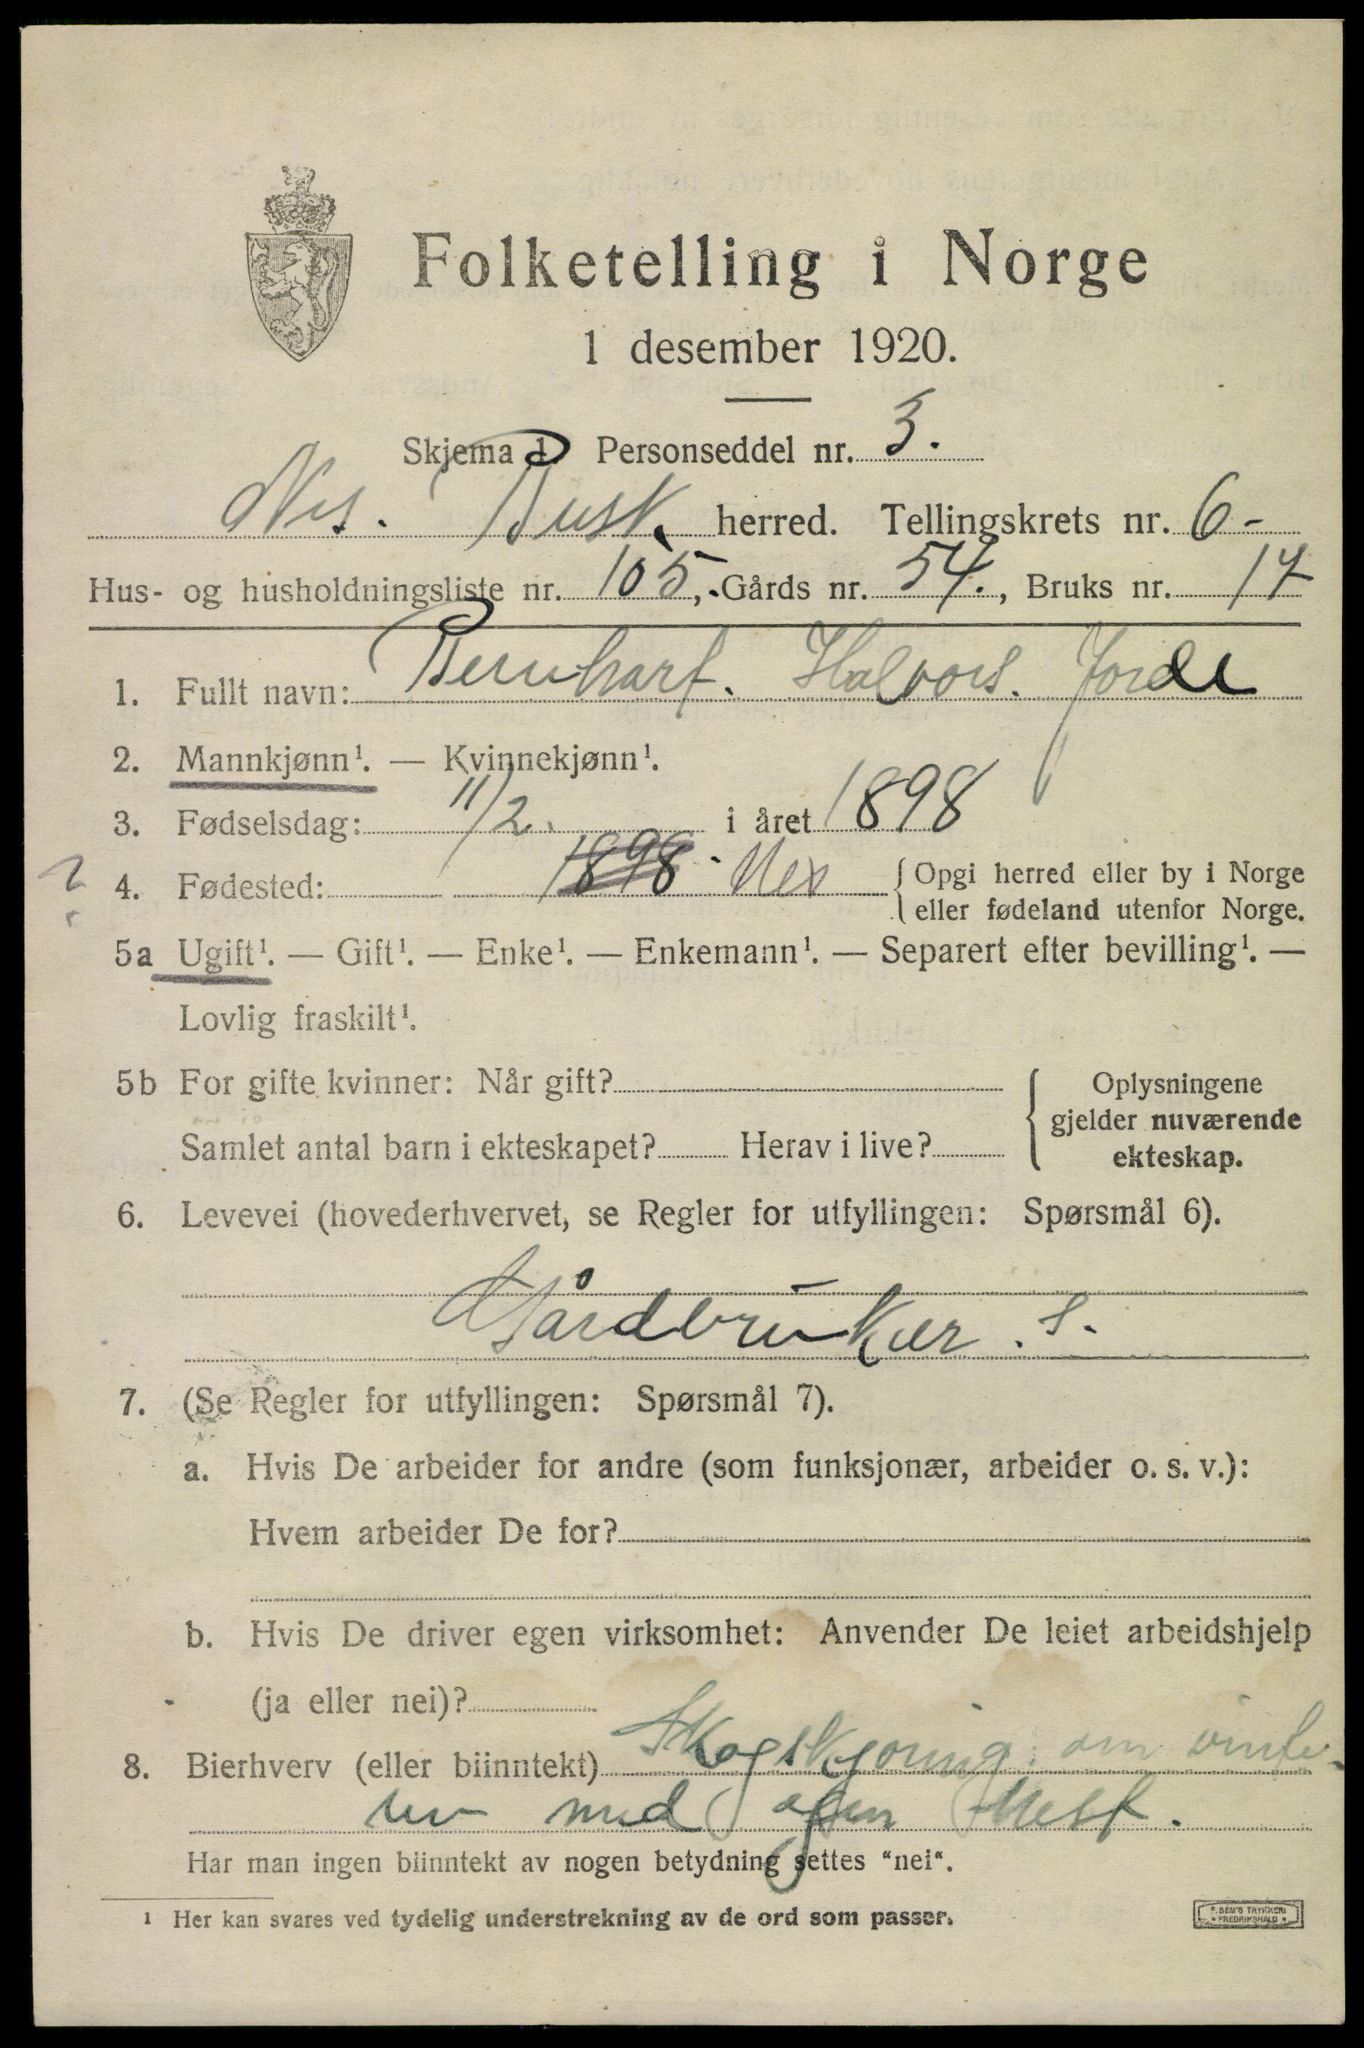 Folketelling i Norge
1 desember 1920.
Skjema 1 Personseddel nr. 3.
Nes. Busk. herred. Tellingskrets nr. 6-
Hus- og husholdningsliste nr. 105, Gårds nr. 54., Bruks nr. 17
1. Fullt navn: Bernhart. Halvors. Jorde
2. Mannkjønn¹. — Kvinnekjønn¹.
3. Fødselsdag: 11/2. i året 1898
? 4. Fødested: 1898. Nes { Opgi herred eller by i Norge
eller fødeland utenfor Norge.
5a Ugift¹. — Gift¹. — Enke¹. — Enkemann¹. — Separert efter bevilling¹. —
Lovlig fraskilt¹.
5b For gifte kvinner: Når gift?
Samlet antal barn i ekteskapet? Herav i live?
Oplysningene
gjelder nuværende
ekteskap.
6. Levevei (hovederhvervet, se Regler for utfyllingen: Spørsmål 6).
Gårdbruker. s.
7. (Se Regler for utfyllingen: Spørsmål 7).
a. Hvis De arbeider for andre (som funksjonær, arbeider o. s. v.):
Hvem arbeider De for?
b. Hvis De driver egen virksomhet: Anvender De leiet arbeidshjelp
(ja eller nei)?
8. Bierhverv (eller biinntekt) Skogskjøring om vinte-
ren med egen Hest.
Har man ingen biinntekt av nogen betydning settes "nei".
¹ Her kan svares ved tydelig understrekning av de ord som passer.
E. SEM'S TRYKKERI
FREDRIKSHALD